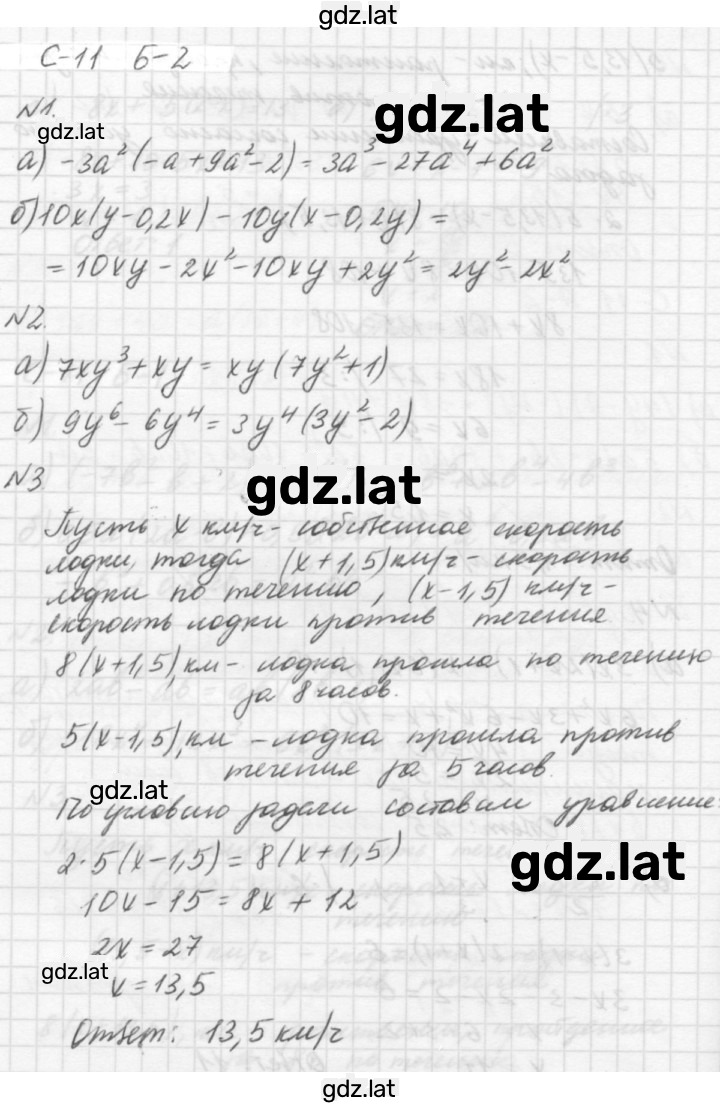 gdz.lat
С-11 Б-2
gdz.lat
N1.
gdz.lat
а) -3a²(-a+9a²-2) = 3a³-27a⁴+6a²
б) 10x(y-0,2x) - 10y(x-0,2y) =
= 10xy - 2x² - 10xy + 2y² = 2y² - 2x²
N2.
а) 7xy³ + xy = xy(7y²+1)
б) 9y⁶ - 6y⁴ = 3y⁴(3y²-2)
N3
gdz.lat
Пусть x км/ч - собственная скорость
лодки, тогда (x+1,5) км/ч - скорость
лодки по течению, (x-1,5) км/ч -
скорость лодки против течения.
8(x+1,5), км - лодка прошла по течению
за 8 часов.
5(x-1,5), км - лодка прошла против
течения за 5 часов.
gdz.lat
По условию задачи составим уравнение:
2·5(x-1,5) = 8(x+1,5)
gdz.lat
10x - 15 = 8x + 12
2x = 27
gdz.lat
x = 13,5
Ответ: 13,5 км/ч
gdz.lat